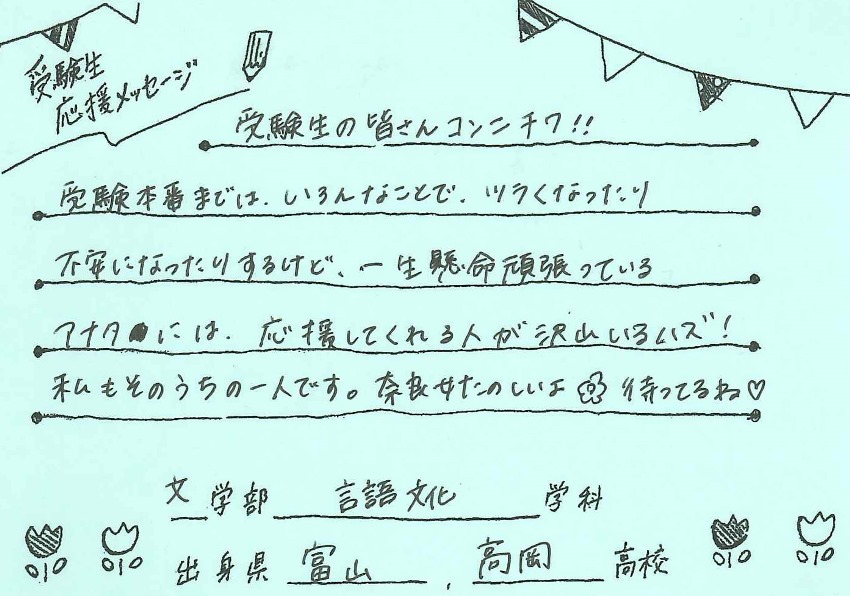 受験生
応援メッセージ
受験生の皆さんコンニチワ!!
受験本番までは、いろんなことで、ツラくなったり
不安になったりするけど、一生懸命頑張っている
アナタには、応援してくれる人が沢山いるハズ!
私もそのうちの一人です。奈良女たのしいよ 待ってるね♡
文学部 言語文化 学科
出身県 富山 , 高岡 高校